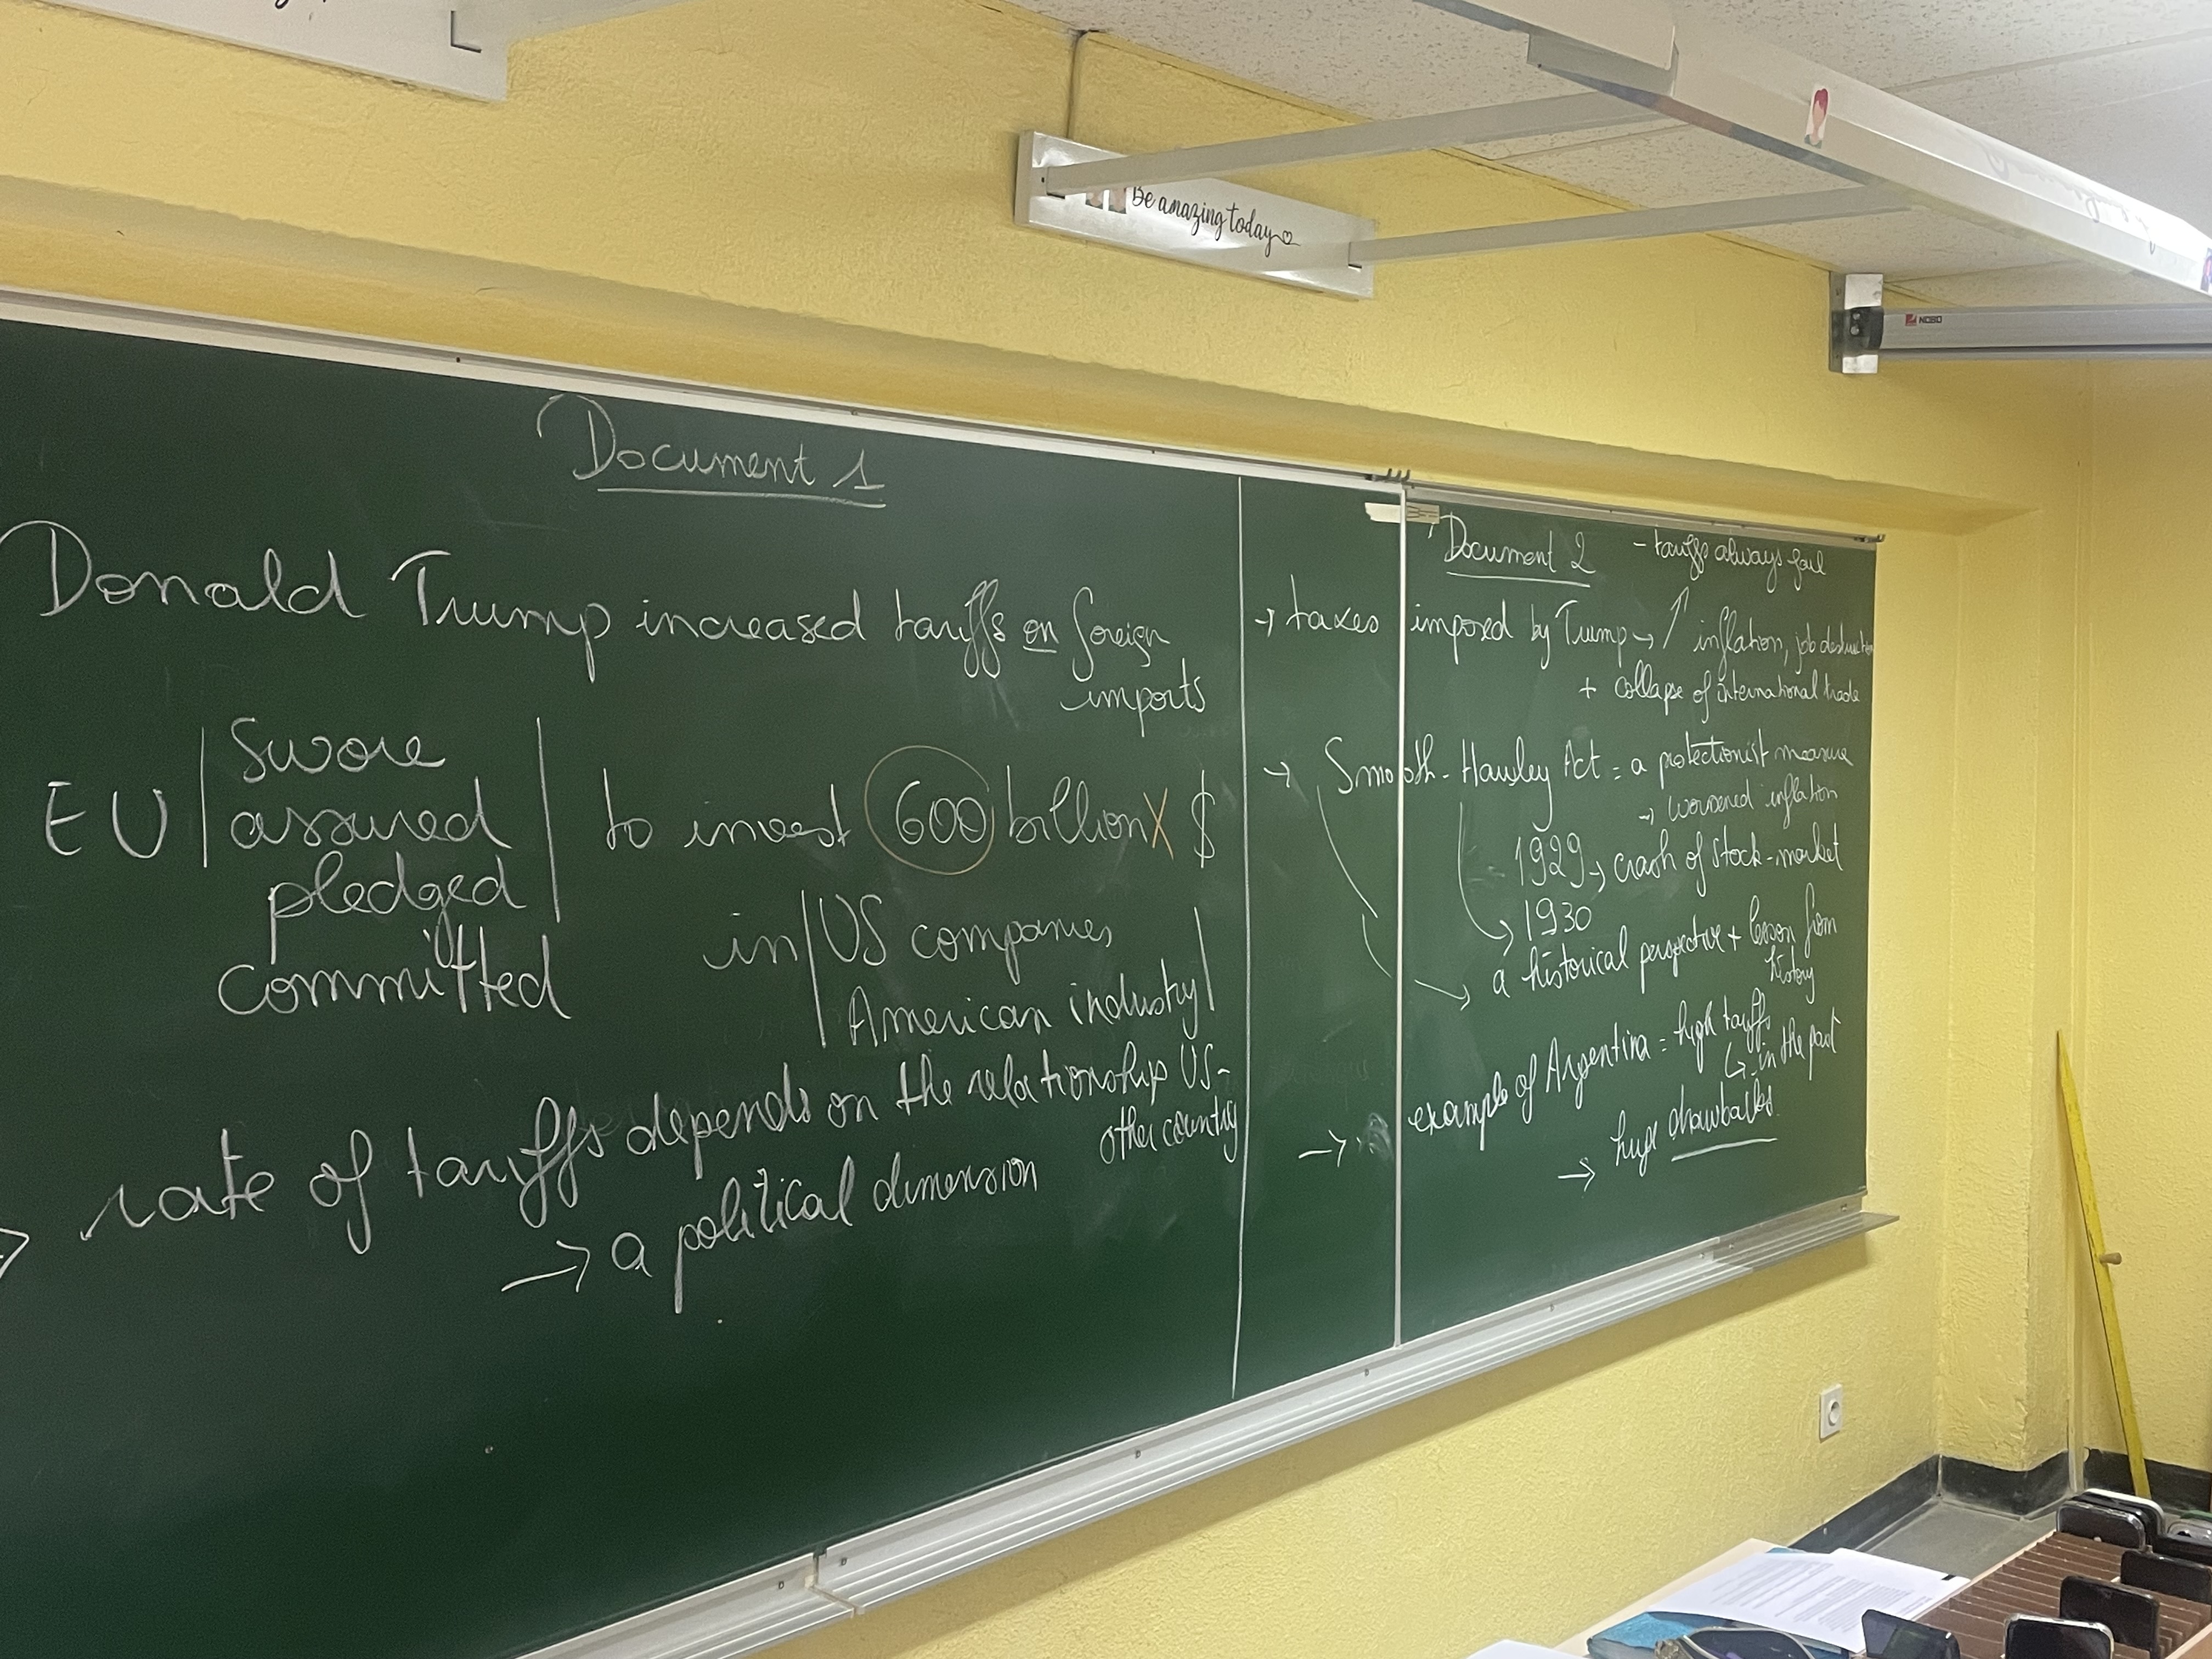 Be amazing today
NOBO
Document 1
Donald Trump increased tariffs on foreign
imports
EU | swore | to invest 600 billion X $
assured
pledged
committed
in | US companies
American industry |
rate of tariffs depends on the relationship US-
other country
→ a political dimension
Document 2
- tariffs always fail
→ taxes imposed by Trump → ↑ inflation, job destruction
+ collapse of international trade
→ Smooth-Hawley Act = a protectionist measure
→ worsened inflation
1929 → crash of stock-market
→ 1930
→ a historical perspective + lesson from
history
→ example of Argentina = high tariffs
↳ in the past
→ huge drawbacks